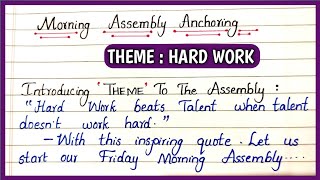 Morning Assembly Anchoring
THEME : HARD WORK
Introducing "THEME" To The Assembly :
"Hard Work beats Talent when talent
doesn't work hard."
- With this inspiring quote. Let us
start our Friday Morning Assembly....